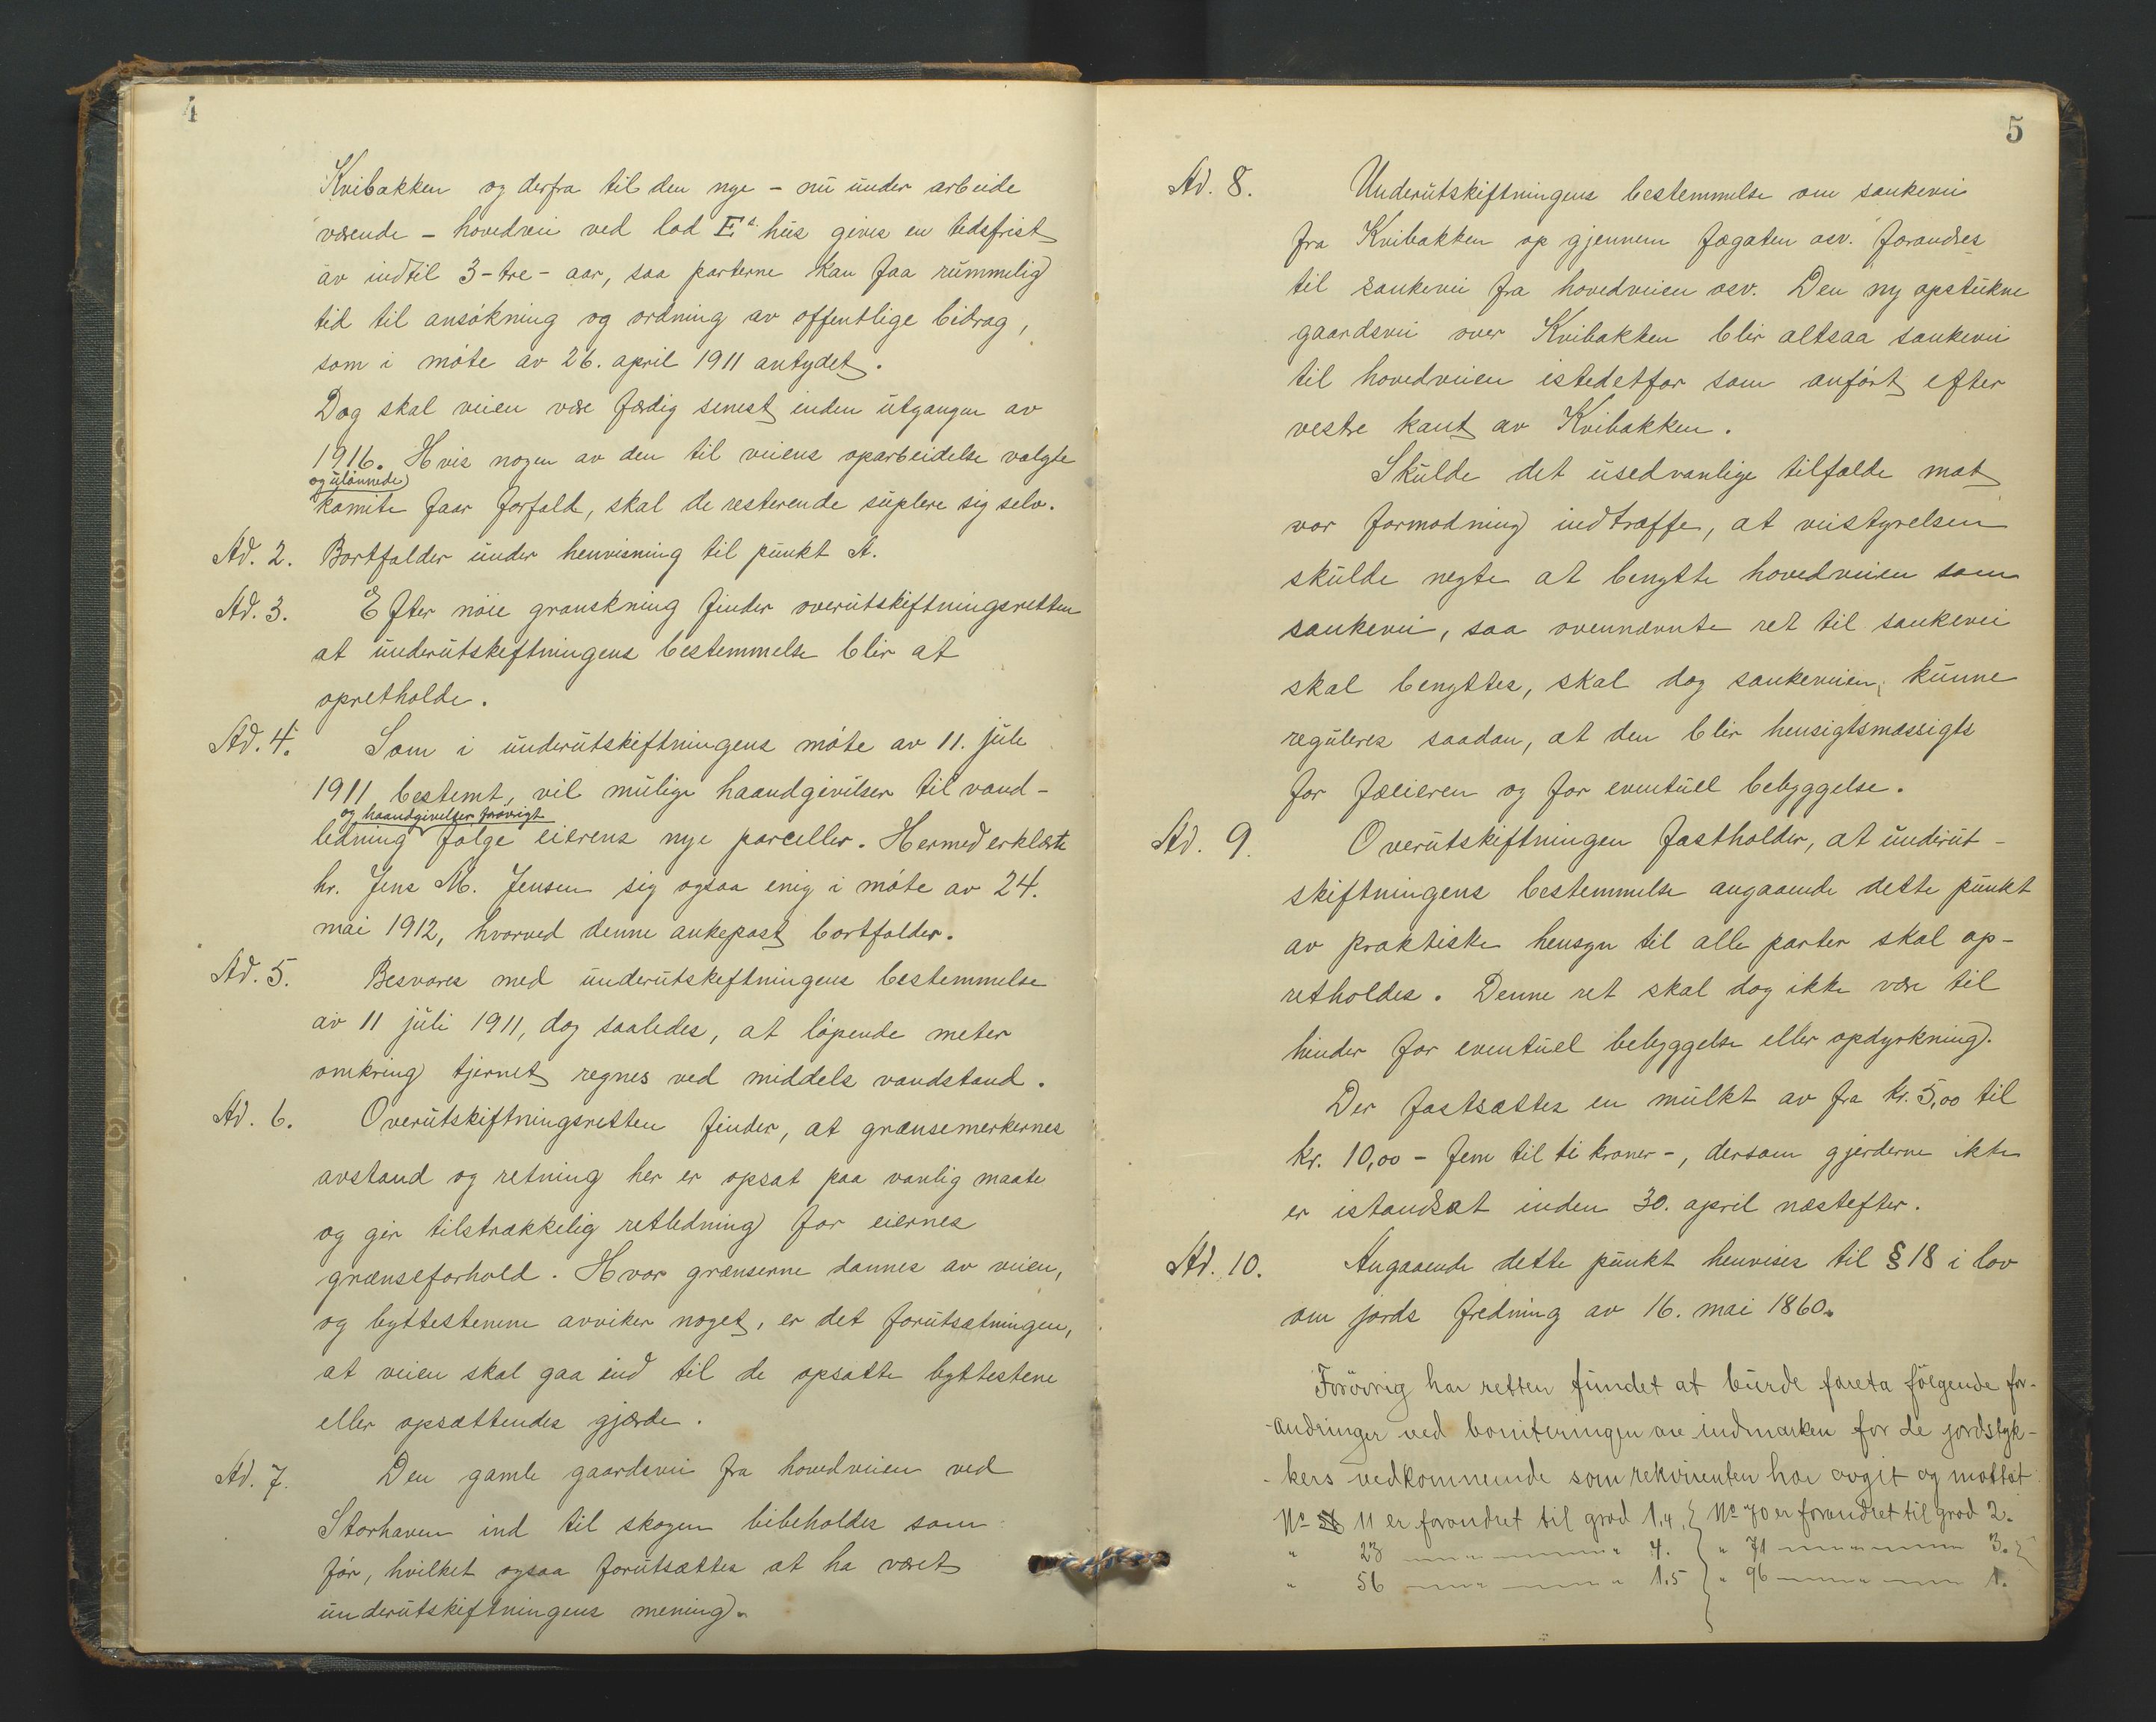 4
Kvibakken og derfra til den nye - nu under arbeide
værende - hovedvei ved lod Es hus gives en tidsfrist
av indtil 3 - tre - aar, saa parterne kan faa rummelig
tid til ansøkning og ordning av offentlige bidrag,
som i møte av 26. april 1911 antydet.
Dog skal veien være færdig senest inden utgangen av
1916. Hvis nogen av den til veiens oparbeidelse valgte
og ulønnede
komite faar forfald, skal de resterende suplere sig selv.
Ad. 2. Bortfalder under henvisning til punkt A.
Ad. 3. Efter nøie granskning finder overutskiftningsretten
at underutskiftningens bestemmelse blir at
opretholde.
Ad. 4. Som i underutskiftningens møte av 11. juli
1911 bestemt, vil mulige haandgivelser til vand-
og haandgivelser forøvrigt
ledning følge eierens nye parceller. Hermed erklærte
hr. Jens M. Jensen sig ogsaa enig i møte av 24.
mai 1912, hvorved denne ankepost bortfalder.
Ad. 5. Besvares med underutskiftningens bestemmelse
av 11 juli 1911, dog saaledes, at løpende meter
omkring tjernet regnes ved middels vandstand.
Ad. 6. Overutskiftningsretten finder, at grænsemerkernes
avstand og retning her er opsat paa vanlig maate
og gir tilstrækkelig retledning for eiernes
grænseforhold. Hvor grænserne dannes av veien,
og byttestenene avviker noget, er det forutsætningen,
at veien skal gaa ind til de opsatte byttestene
eller opsættendes gjærde.
Ad. 7. Den gamle gaardsvei fra hovedveien ved
Storhaven ind til skogen bibeholdes som
før, hvilket ogsaa forutsættes at ha været
underutskiftningens mening.
5
Ad. 8. Underutskiftningens bestemmelse om sankevei
fra Kvibakken op gjennem fægaten osv. forandres
til sankevei fra hovedveien osv. Den ny opstukne
gaardsvei over Kvibakken blir altsaa sankevei
til hovedveien istedetfor som anført efter
vestre kant av Kvibakken.
Skulde det usedvanlige tilfælde mot
vor formodning indtræffe, at veistyrelsen
skulde negte at benytte hovedveien som
sankevei, saa ovennævnte ret til sankevei
skal benyttes, skal dog sankeveien kunne
reguleres saadan, at den blir hensigtsmæssigts
for fæeieren og for eventuel bebyggelse.
Ad. 9. Overutskiftningen fastholder, at underut-
skiftningens bestemmelse angaaende dette punkt
av praktiske hensyn til alle parter skal op-
retholdes. Denne ret skal dog ikke være til
hinder for eventuel bebyggelse eller opdyrkning.
Der fastsættes en mulkt av fra kr. 5,00 til
kr. 10,00 - fem til ti kroner -, dersom gjerderne ikke
er istandsat inden 30. april næstefter.
Ad. 10. Angaaende dette punkt henvises til § 18 i lov
om jords fredning av 16. mai 1860.
Forövrig har retten fundet at burde foreta følgende for-
-andringer ved boniteringen av indmarken for de jordstyk-
-kers vedkommende som rekvirenten har avgit og mottat
No 11 er forandret til grad 1,4. } No 70 er forandret til grad 2.
" 23 — " — " 4. } " 71 — " — 3.
" 56 — " — " 1.5 } " 96 — " — 1.